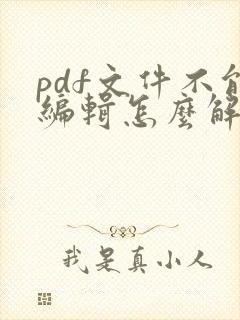 pdf文件不能
編輯怎麼解
我是真小人